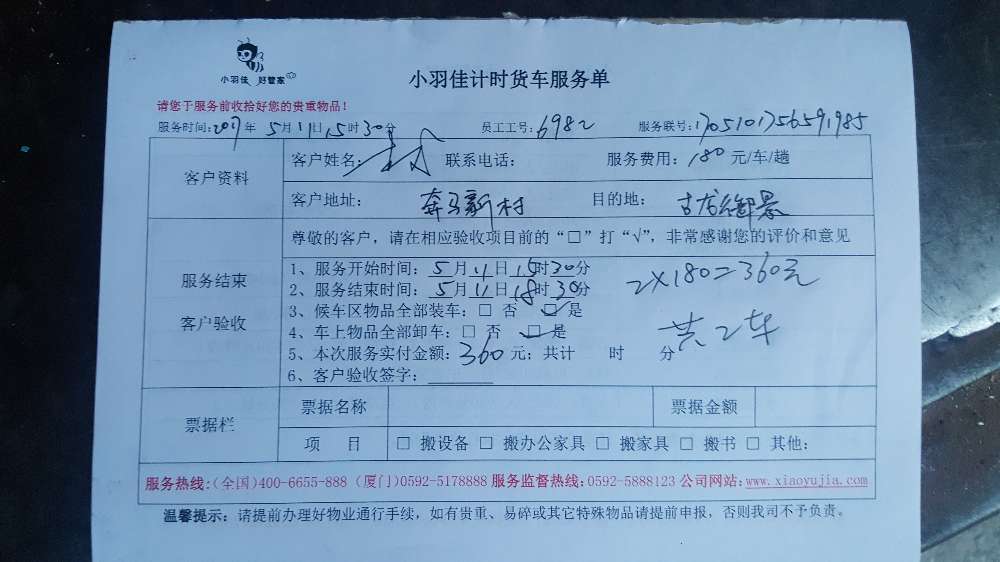 小羽佳 好管家
小羽佳计时货车服务单
请您于服务前收拾好您的贵重物品！
服务时间：2017年 5月11日15时30分 员工工号：6982 服务联号：1705101756591985
客户资料
客户姓名： 联系电话： 服务费用：180 元/车/趟
客户地址： 奔马新村 目的地： 古龙御景
服务结束
客户验收
尊敬的客户，请在相应验收项目前的“□”打“√”，非常感谢您的评价和意见
1、服务开始时间：5月11日15时30分
2、服务结束时间：5月11日18时30分
3、候车区物品全部装车：□ 否 ☑ 是
4、车上物品全部卸车：□ 否 ☑ 是
5、本次服务实付金额：360 元；共计 时 分
6、客户验收签字：
2×180=360元
共2车
票据栏
票据名称 票据金额
项 目 □ 搬设备 □ 搬办公家具 □ 搬家具 □ 搬书 □ 其他：
服务热线：(全国)400-6655-888 (厦门)0592-5178888 服务监督热线：0592-5888123 公司网站：www.xiaoyujia.com
温馨提示：请提前办理好物业通行手续，如有贵重、易碎或其它特殊物品请提前申报，否则我司不予负责。